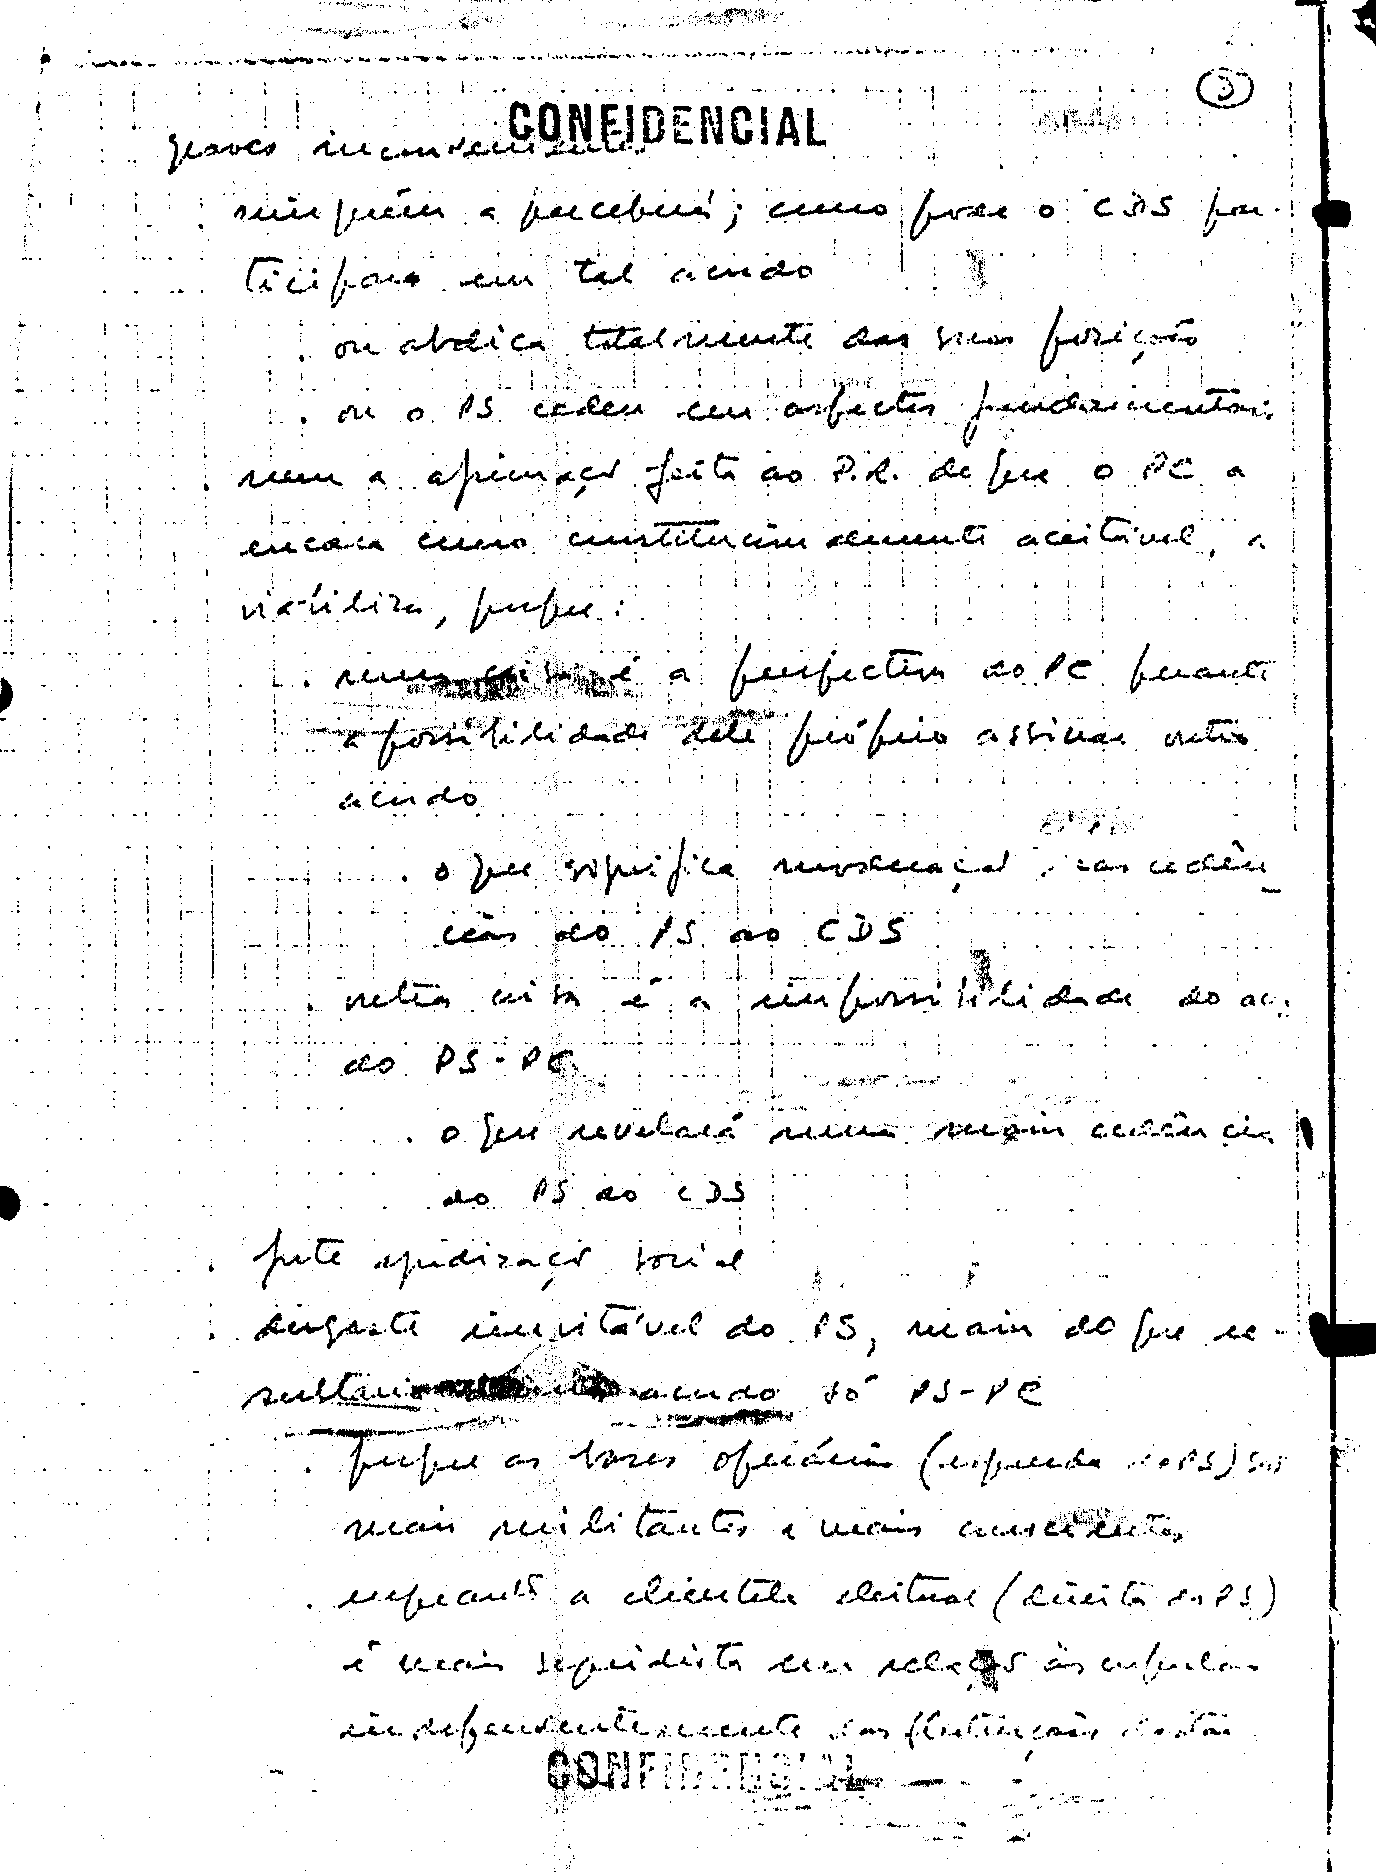 3
CONFIDENCIAL
graves inconvenientes
. ninguém a perceberá; como pode o CDS par-
ticipar em tal acordo
. ou abdica totalmente das suas posições
. ou o PS cedeu em aspectos fundamentais
. nem a afirmação feita ao P.R. de que o PC a
encara como constitucionalmente aceitável, a
viabiliza, porque:
. uma coisa é a perspectiva do PC perante
a possibilidade dele próprio assinar outro
acordo
. o que significa moderação nas cedên-
cias do PS ao CDS
. outra coisa é a impossibilidade do acor-
do PS-PC
. o que revelará uma maior cedência
do PS ao CDS
. forte agudização social
. desgaste inevitável do PS, maior do que re-
sultaria acordo só PS-PC
. porque as bases operárias (esquerda do PS) são
mais militantes e mais conscientes
. enquanto a clientela eleitoral (direita do PS)
é mais seguidista em relação às cúpulas
independentemente das flutuações destas
CONFIDENCIAL